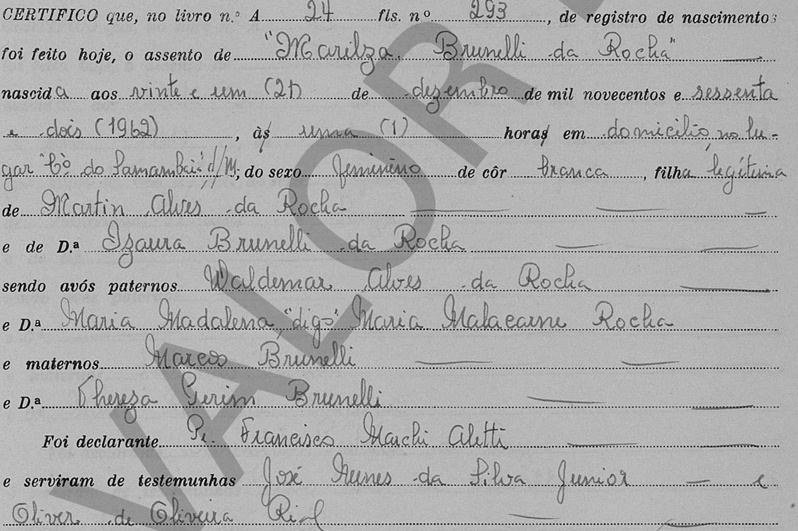 CERTIFICO que, no livro n.º A 24 fls. nº 293, de registro de nascimentos
foi feito hoje, o assento de "Marilza Brunelli da Rocha"
nascida aos vinte e um (21) de dezembro de mil novecentos e sessenta
e dois (1962), às uma (1) horas em domicilio, no lu-
gar "Co do Samambaia" d/m; do sexo feminino de côr branca, filha legítima
de Martin Alves da Rocha
e de D.ª Izaura Brunelli da Rocha
sendo avós paternos Waldemar Alves da Rocha
e D.ª Maria Madalena, "digo" Maria Malacarne Rocha
e maternos Marcos Brunelli
e D.ª Thereza Brunelli
Foi declarante Pe. Francisco Marchi
e serviram de testemunhas José Nunes da Silva Junior e
Oliver de Oliveira
VALOR